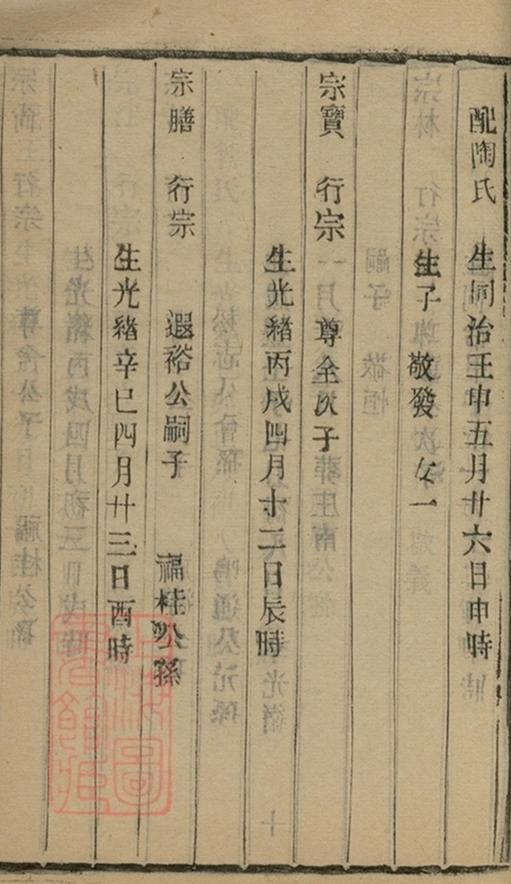 配陶氏 生同治壬申五月廿六日申時
生子敬發女一
宗寶 行宗 尊全次子
生光緒丙戌四月十二日辰時
宗膳 行宗 遐裕公嗣子 福桂公孫
生光緒辛巳四月廿三日酉時